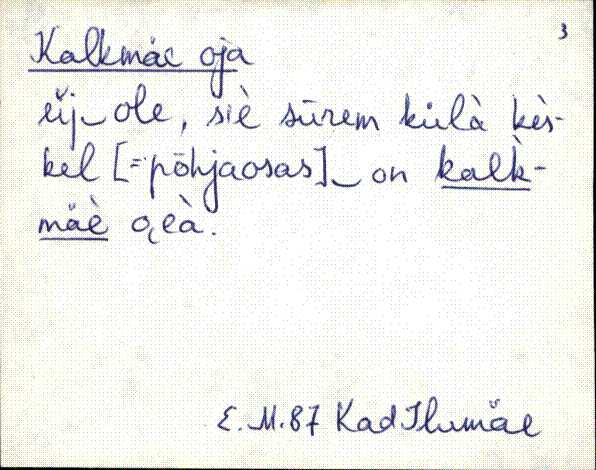 3
Kalkmäe oja
eij‿ole, siè sūrem külà kès-
kel [= põhjaosas]‿on kalk̀-
mäè o̯eà.
E.M.87 Kad Ilumäe